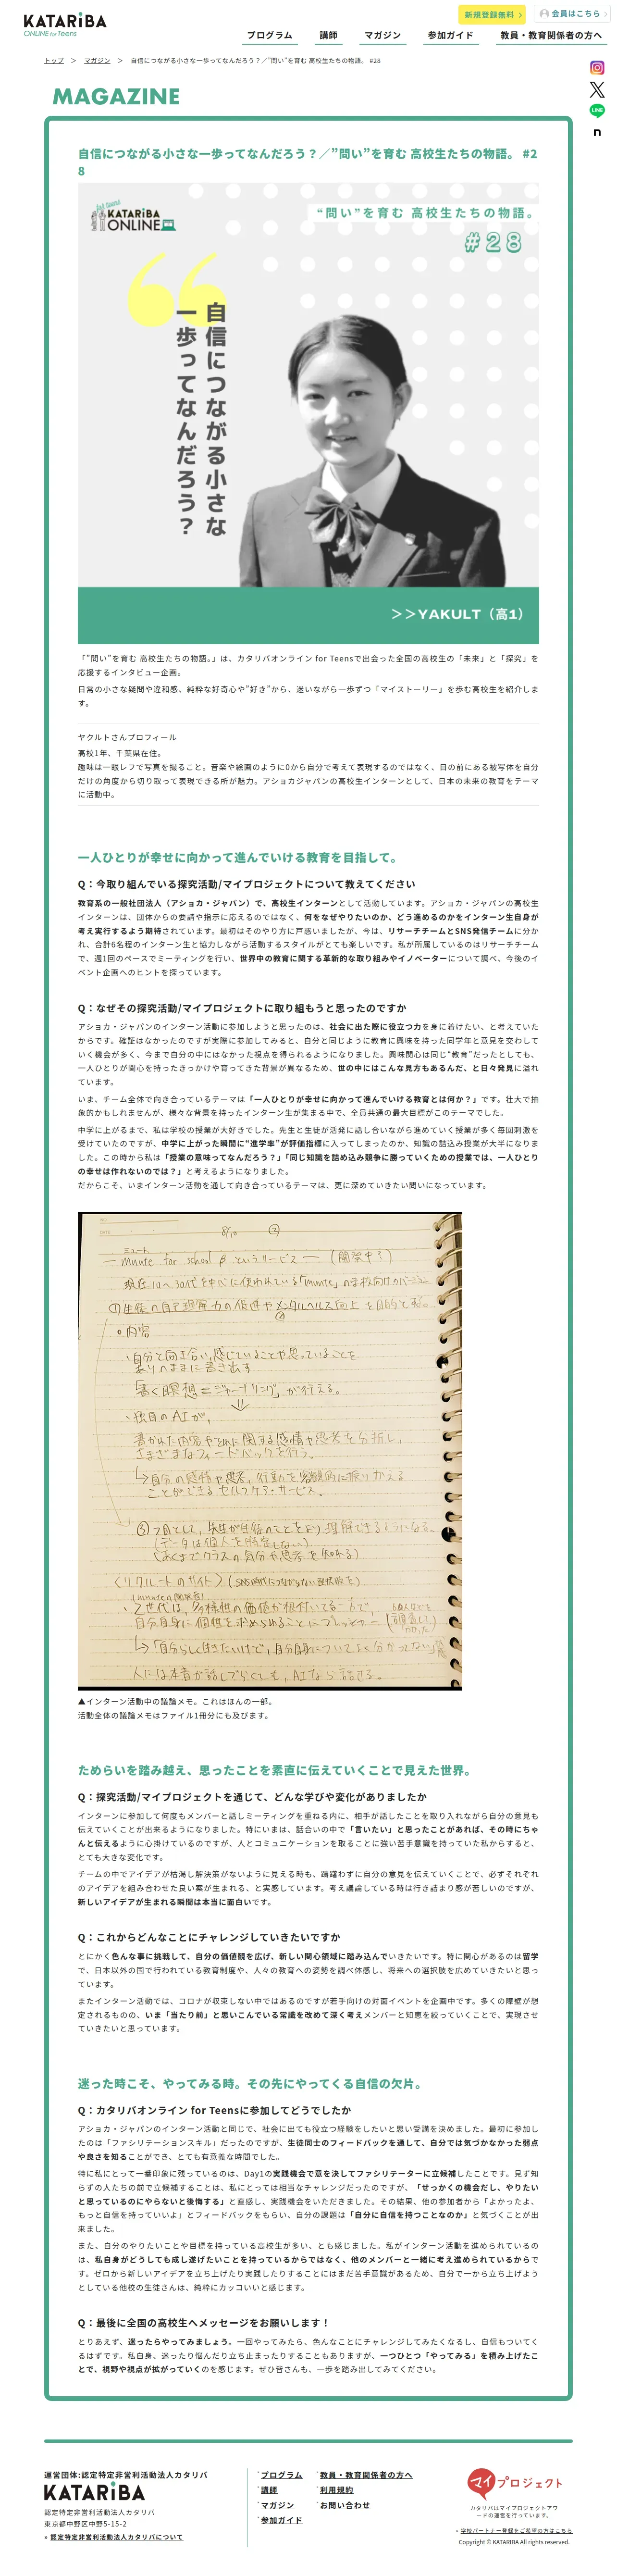 KATARIBA
ONLINE for Teens
新規登録無料
会員はこちら
プログラム
講師
マガジン
参加ガイド
教員・教育関係者の方へ
トップ ＞ マガジン ＞ 自信につながる小さな一歩ってなんだろう？／”問い”を育む 高校生たちの物語。 #28
LINE
n
MAGAZINE
自信につながる小さな一歩ってなんだろう？／”問い”を育む 高校生たちの物語。 #2
8
for teens
KATARIBA
ONLINE
“問い”を育む 高校生たちの物語。
#28
自信につながる小さな
一歩ってなんだろう？
>>YAKULT（高1）
「”問い”を育む 高校生たちの物語。」は、カタリバオンライン for Teensで出会った全国の高校生の「未来」と「探究」を
応援するインタビュー企画。
日常の小さな疑問や違和感、純粋な好奇心や”好き”から、迷いながら一歩ずつ「マイストーリー」を歩む高校生を紹介しま
す。
ヤクルトさんプロフィール
高校1年、千葉県在住。
趣味は一眼レフで写真を撮ること。音楽や絵画のように0から自分で考えて表現するのではなく、目の前にある被写体を自分
だけの角度から切り取って表現できる所が魅力。アショカジャパンの高校生インターンとして、日本の未来の教育をテーマ
に活動中。
一人ひとりが幸せに向かって進んでいける教育を目指して。
Q：今取り組んでいる探究活動/マイプロジェクトについて教えてください
教育系の一般社団法人（アショカ・ジャパン）で、高校生インターンとして活動しています。アショカ・ジャパンの高校生
インターンは、団体からの要請や指示に応えるのではなく、何をなぜやりたいのか、どう進めるのかをインターン生自身が
考え実行するよう期待されています。最初はそのやり方に戸惑いましたが、今は、リサーチチームとSNS発信チームに分か
れ、合計6名程のインターン生と協力しながら活動するスタイルがとても楽しいです。私が所属しているのはリサーチチーム
で、週1回のペースでミーティングを行い、世界中の教育に関する革新的な取り組みやイノベーターについて調べ、今後のイ
ベント企画へのヒントを探っています。
Q：なぜその探究活動/マイプロジェクトに取り組もうと思ったのですか
アショカ・ジャパンのインターン活動に参加しようと思ったのは、社会に出た際に役立つ力を身に着けたい、と考えていた
からです。確証はなかったのですが実際に参加してみると、自分と同じように教育に興味を持った同学年と意見を交わして
いく機会が多く、今まで自分の中にはなかった視点を得られるようになりました。興味関心は同じ“教育”だったとしても、
一人ひとりが関心を持ったきっかけや育ってきた背景が異なるため、世の中にはこんな見方もあるんだ、と日々発見に溢れ
ています。
いま、チーム全体で向き合っているテーマは「一人ひとりが幸せに向かって進んでいける教育とは何か？」です。壮大で抽
象的かもしれませんが、様々な背景を持ったインターン生が集まる中で、全員共通の最大目標がこのテーマでした。
中学に上がるまで、私は学校の授業が大好きでした。先生と生徒が活発に話し合いながら進めていく授業が多く毎回刺激を
受けていたのですが、中学に上がった瞬間に“進学率”が評価指標に入ってしまったのか、知識の詰込み授業が大半になりま
した。この時から私は「授業の意味ってなんだろう？」「同じ知識を詰め込み競争に勝っていくための授業では、一人ひとり
の幸せは作れないのでは？」と考えるようになりました。
だからこそ、いまインターン活動を通して向き合っているテーマは、更に深めていきたい問いになっています。
8/10 ②
ミュート
mute for school β というサービス ー (開発中？)
①生徒の自己理解力の促進や②メンタルヘルス向上 を目的とする。
○内容
・自分と向き合い、感じていることや思っていることを
ありのままに書き出す
「書く瞑想＝ジャーナリング」が行える。
・独自のAIが、
書かれた内容やそれに関する感情や思考を分析し、
さまざまなフィードバックを行う。
↳自分の感情や思考、行動を客観的に振りかえる
ことができるセルフケア・サービス。
③つ目として、先生が生徒のことをより理解できるようになる。
(データは個人を特定しない)
(あくまでクラスの気分や思考を知れる)
人には本音が話しづらくても、AIなら話せる。
▲インターン活動中の議論メモ。これはほんの一部。
活動全体の議論メモはファイル1冊分にも及びます。
ためらいを踏み越え、思ったことを素直に伝えていくことで見えた世界。
Q：探究活動/マイプロジェクトを通じて、どんな学びや変化がありましたか
インターンに参加して何度もメンバーと話しミーティングを重ねる内に、相手が話したことを取り入れながら自分の意見も
伝えていくことが出来るようになりました。特にいまは、話合いの中で「言いたい」と思ったことがあれば、その時にちゃ
んと伝えるように心掛けているのですが、人とコミュニケーションを取ることに強い苦手意識を持っていた私からすると、
とても大きな変化です。
チームの中でアイデアが枯渇し解決策がないように見える時も、躊躇わずに自分の意見を伝えていくことで、必ずそれぞれ
のアイデアを組み合わせた良い案が生まれる、と実感しています。考え議論している時は行き詰まり感が苦しいのですが、
新しいアイデアが生まれる瞬間は本当に面白いです。
Q：これからどんなことにチャレンジしていきたいですか
とにかく色んな事に挑戦して、自分の価値観を広げ、新しい関心領域に踏み込んでいきたいです。特に関心があるのは留学
で、日本以外の国で行われている教育制度や、人々の教育への姿勢を調べ体感し、将来への選択肢を広めていきたいと思っ
ています。
またインターン活動では、コロナが収束しない中ではあるのですが若手向けの対面イベントを企画中です。多くの障壁が想
定されるものの、いま「当たり前」と思いこんでいる常識を改めて深く考えメンバーと知恵を絞っていくことで、実現させ
ていきたいと思っています。
迷った時こそ、やってみる時。その先にやってくる自信の欠片。
Q：カタリバオンライン for Teensに参加してどうでしたか
アショカ・ジャパンのインターン活動と同じで、社会に出ても役立つ経験をしたいと思い受講を決めました。最初に参加し
たのは「ファシリテーションスキル」だったのですが、生徒同士のフィードバックを通して、自分では気づかなかった弱点
や良さを知ることができ、とても有意義な時間でした。
特に私にとって一番印象に残っているのは、Day1の実践機会で意を決してファシリテーターに立候補したことです。見ず知
らずの人たちの前で立候補することは、私にとっては相当なチャレンジだったのですが、「せっかくの機会だし、やりたい
と思っているのにやらないと後悔する」と直感し、実践機会をいただきました。その結果、他の参加者から「よかったよ、
もっと自信を持っていいよ」とフィードバックをもらい、自分の課題は「自分に自信を持つことなのか」と気づくことが出
来ました。
また、自分のやりたいことや目標を持っている高校生が多い、とも感じました。私がインターン活動を進められているの
は、私自身がどうしても成し遂げたいことを持っているからではなく、他のメンバーと一緒に考え進められているからで
す。ゼロから新しいアイデアを立ち上げたり実践したりすることにはまだ苦手意識があるため、自分で一から立ち上げよう
としている他校の生徒さんは、純粋にカッコいいと感じます。
Q：最後に全国の高校生へメッセージをお願いします！
とりあえず、迷ったらやってみましょう。一回やってみたら、色んなことにチャレンジしてみたくなるし、自信もついてく
るはずです。私自身、迷ったり悩んだり立ち止まったりすることもありますが、一つひとつ「やってみる」を積み上げたこ
とで、視野や視点が拡がっていくのを感じます。ぜひ皆さんも、一歩を踏み出してみてください。
運営団体:認定特定非営利活動法人カタリバ
KATARIBA
認定特定非営利活動法人カタリバ
東京都中野区中野5-15-2
» 認定特定非営利活動法人カタリバについて
プログラム
講師
マガジン
参加ガイド
教員・教育関係者の方へ
利用規約
お問い合わせ
マイプロジェクト
カタリバはマイプロジェクトアワ
ードの運営を行っています。
» 学校パートナー登録をご希望の方はこちら
Copyright © KATARIBA All rights reserved.